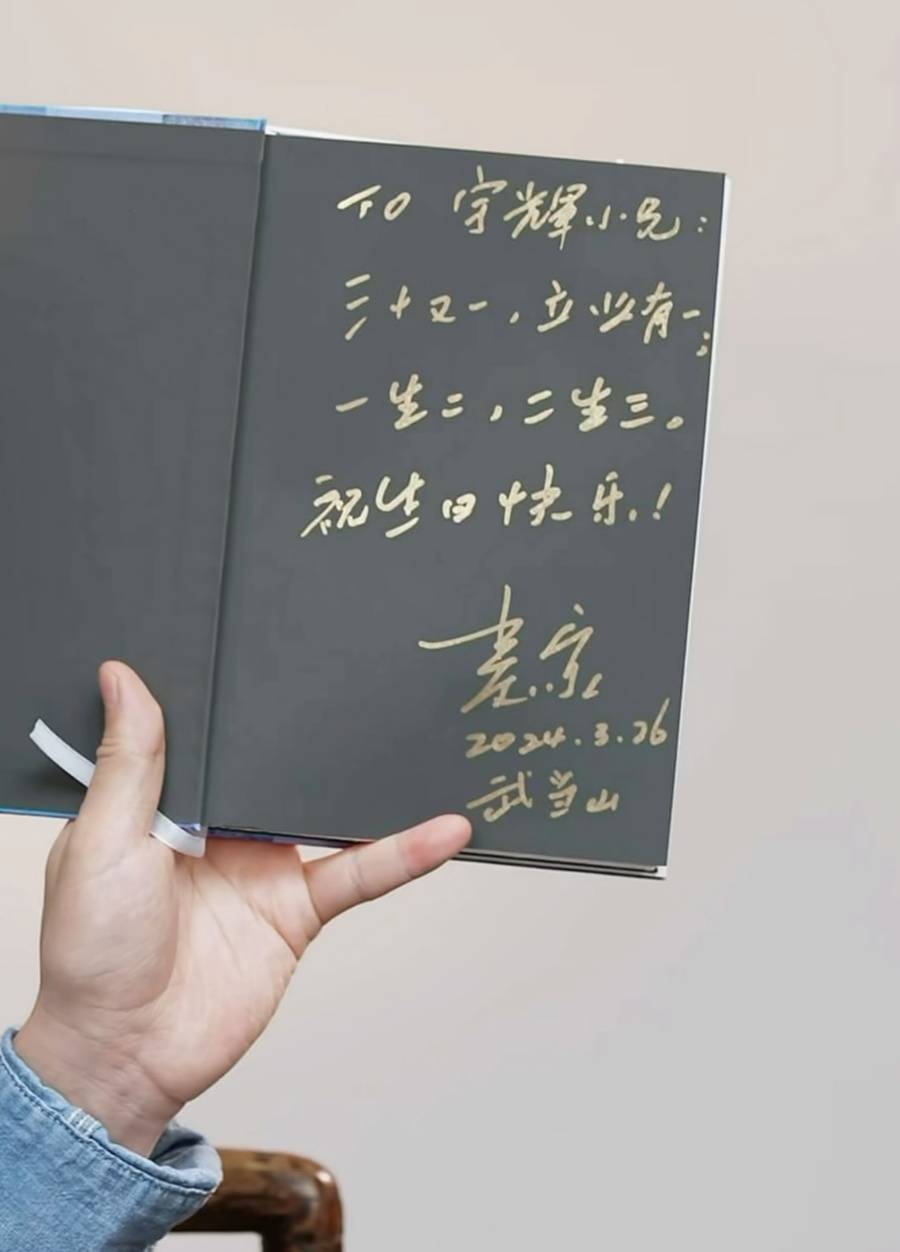 TO 宇輝小兄：
三十又一，立业有一；
一生二，二生三。
祝生日快乐！
2024.3.26
武当山